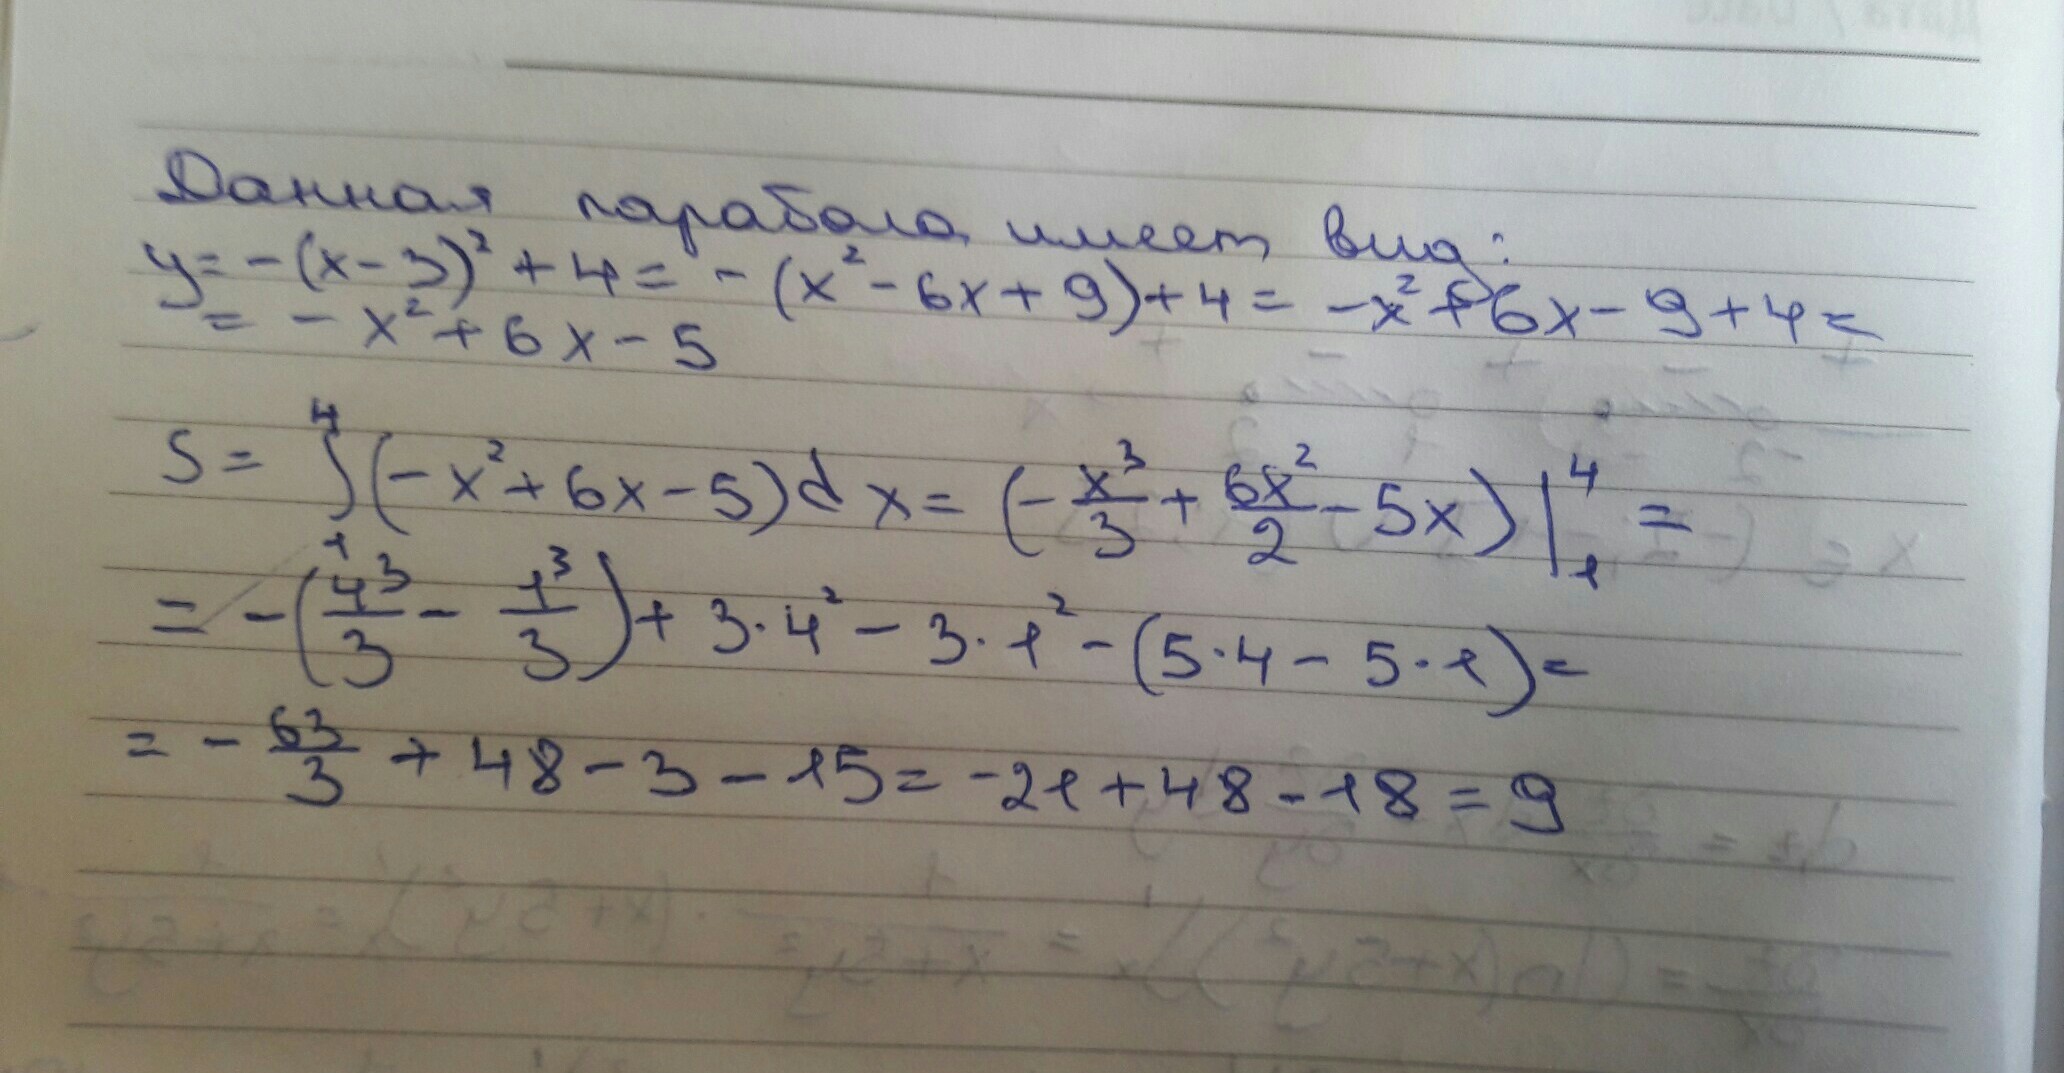 Данная парабола имеет вид:
y = -(x-3)² + 4 = -(x² - 6x + 9) + 4 = -x² + 6x - 9 + 4 =
= -x² + 6x - 5
S = ∫₁⁴ (-x² + 6x - 5) dx = (-x³/3 + 6x²/2 - 5x) |₁⁴ =
= -(4³/3 - 1³/3) + 3·4² - 3·1² - (5·4 - 5·1) =
= -63/3 + 48 - 3 - 15 = -21 + 48 - 18 = 9